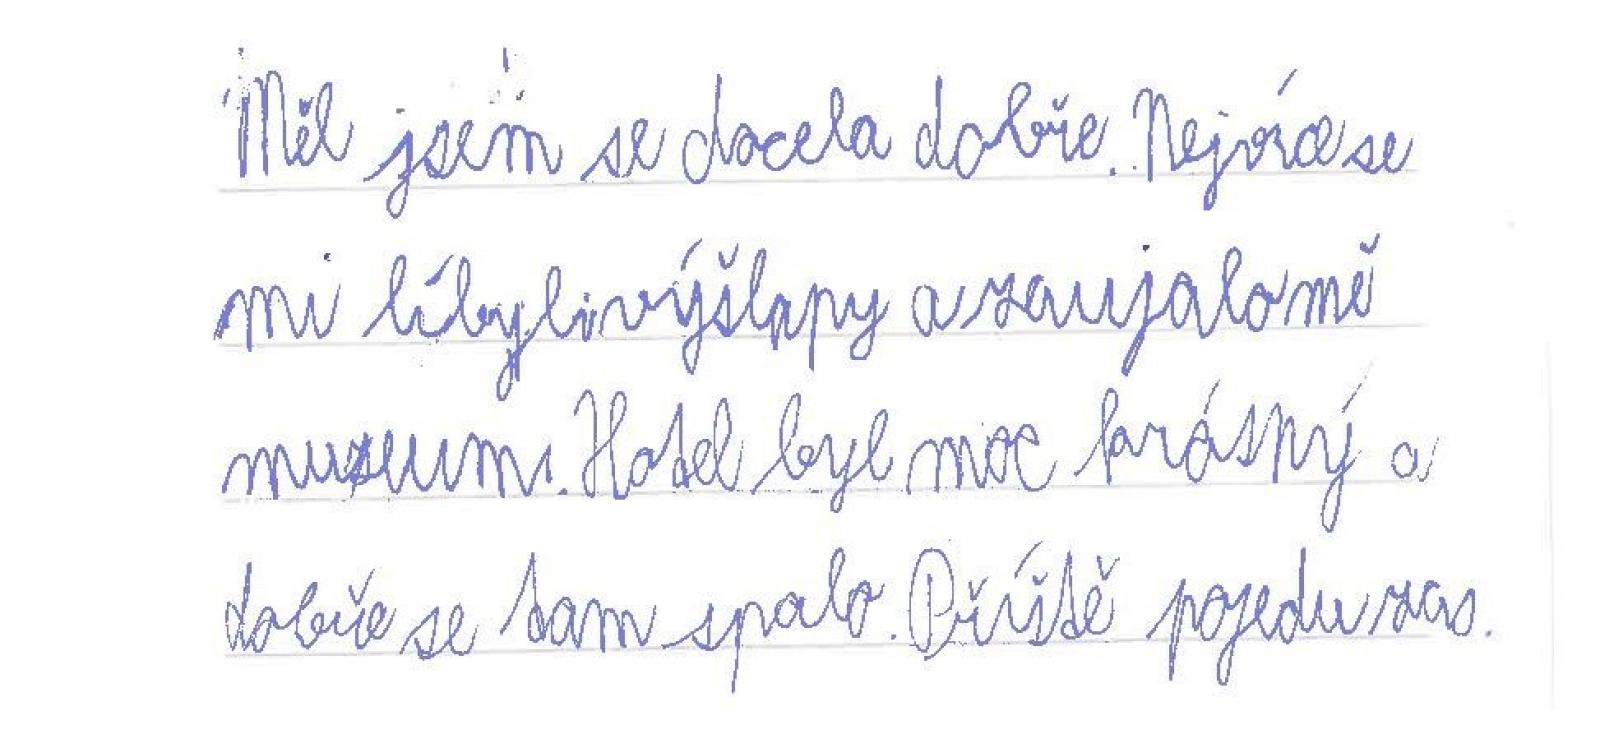 Měl jsem se docela dobře. Nejvíce se
mi líbyli výšlapy a zaujalo mě
muzeum. Hotel byl moc krásný a
dobře se tam spalo. Příště pojedu zas.